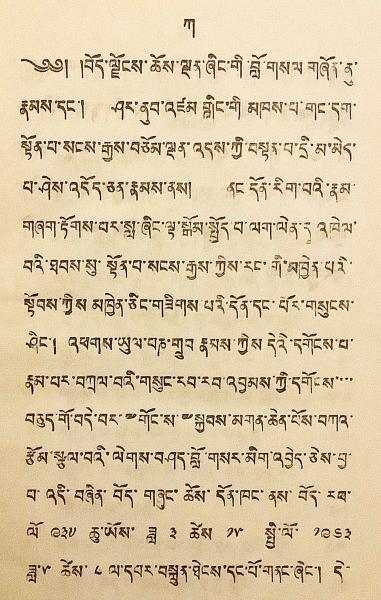 ཀ
༄༅། །བོད་ལྗོངས་ཆོས་ལྡན་ཞིང་གི་བློ་གསལ་གཞོན་ནུ་
རྣམས་དང་། ཤར་ནུབ་འཛམ་གླིང་གི་མཁས་པ་གང་དག་
སྟོན་པ་སངས་རྒྱས་བཅོམ་ལྡན་འདས་ཀྱི་བསྟན་པ་དྲི་མ་མེད་
པ་ཤེས་འདོད་ཅན་རྣམས་ནས། ནང་དོན་རིག་པའི་རྣམ་
གཞག་རྟོགས་པར་སླ་ཞིང་ལྟ་སྒོམ་སྤྱོད་པ་ལག་ལེན་དུ་འཁེལ་
བའི་ཐབས་སུ་ སྟོན་པ་སངས་རྒྱས་ཀྱིས་རང་གི་མཁྱེན་པའི་
སྟོབས་ཀྱིས་མཁྱེན་ཅིང་གཟིགས་པའི་དོན་དང་པོར་གསུངས་
ཤིང་། འཕགས་ཡུལ་པཎ་གྲུབ་རྣམས་ཀྱིས་དེའི་དགོངས་པ་
རྣམ་པར་བཀྲལ་བའི་གསུང་རབ་རབ་འབྱམས་ཀྱི་དགོངས་
བཅུད་གོ་བདེ་བར་༸གོང་ས་༸སྐྱབས་མགོན་ཆེན་པོས་བཀའ་
རྩོམ་སྩལ་བའི་ལེགས་བཤད་བློ་གསར་མིག་འབྱེད་ཅེས་བྱ་
བ་འདི་བཞིན་བོད་གཞུང་ཆོས་དོན་ཁང་ནས་བོད་རབ་
ལོ་ ཆུ་ཡོས་ ཟླ་ ༣ ཆེས་ ༡༩ སྤྱི་ལོ་ ༡༩༦༣
ཟླ་ ཆེས་ ༨ ལ་དཔར་བསྐྲུན་ཐེངས་དང་པོ་གནང་ཞིང་། དེ་